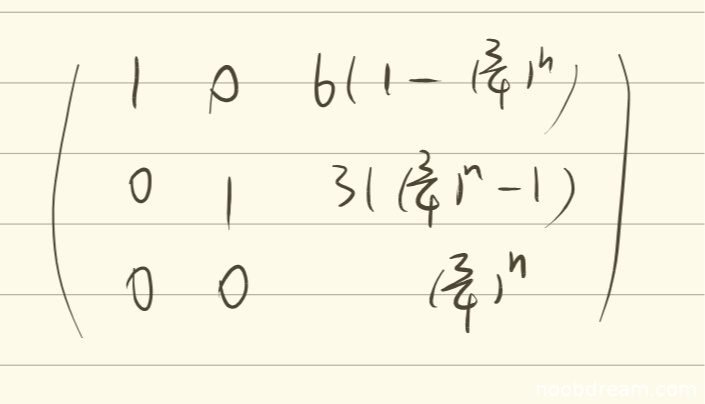 1 0 6(1-(3/4)^n)
0 1 3((3/4)^n-1)
0 0 (3/4)^n
noobdream.com